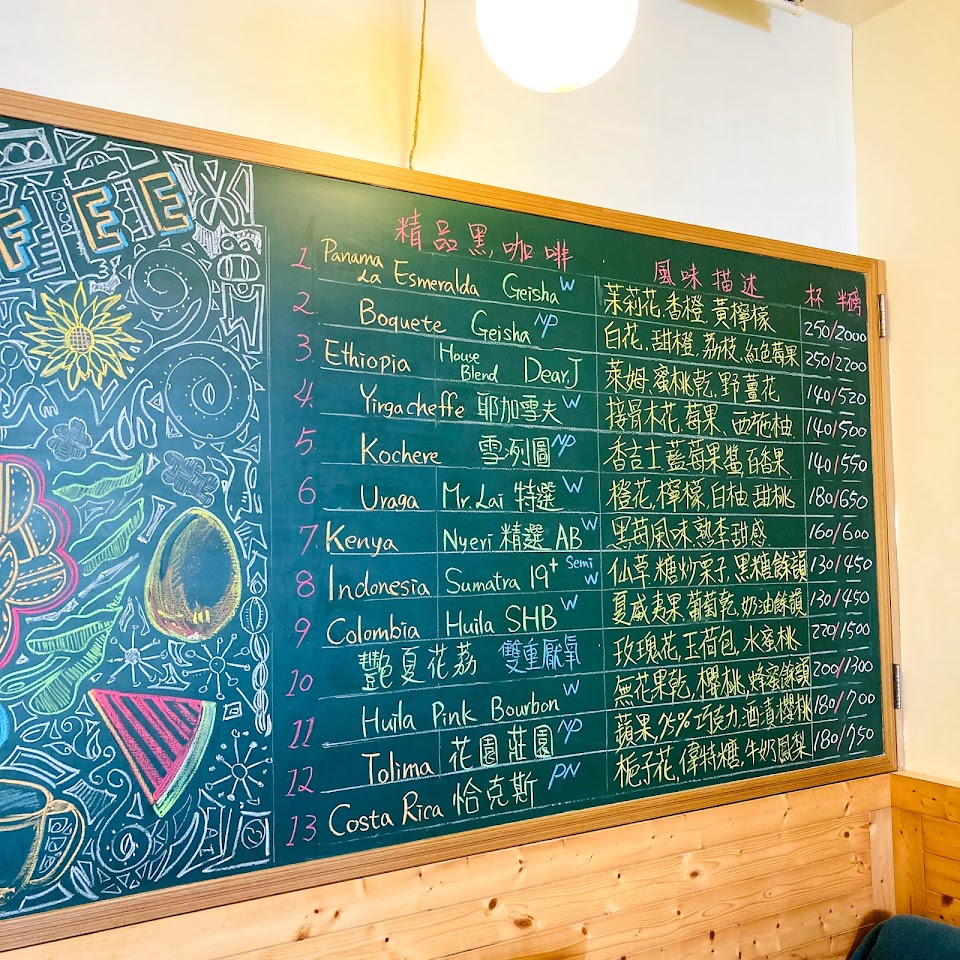 FFEE
精品黑咖啡 風味描述 杯 半磅
1. Panama La Esmeralda Geisha W 茉莉花.香橙.黃檸檬 250/2000
2 Boquete Geisha NP 白花.甜橙.荔枝.紅色莓果 250/2200
3 Ethiopia House Blend Dear.J 萊姆.蜜桃乾.野薑花 140/520
4. Yirgacheffe 耶加雪夫 W 接骨木花.莓果.西施柚 140/500
5 Kochere 雪冽圖 NP 香吉士.藍莓果醬.百香果 140/550
6 Uraga Mr. Lai 特選 W 橙花,檸檬,白柚,甜桃 180/650
7. Kenya Nyeri 精選 AB W 黑莓風味 熟李甜感 160/600
8 Indonesia Sumatra 19+ Semi W 仙草 糖炒栗子.黑糖餘韻 130/450
9 Colombia Huila SHB W 夏威夷果.葡萄乾.奶油餘韻 130/450
10 艷夏花荔 雙重厭氧 玫瑰花.玉荷包.水蜜桃 220/1500
11 Huila Pink Bourbon W 無花果乾.櫻桃.蜂蜜餘韻 200/1300
12 Tolima 花園莊園 NP 蘋果.75%巧克力.酒漬櫻桃 180/700
13 Costa Rica 恰克斯 PN 梔子花,偉特糖,牛奶鳳梨 180/750